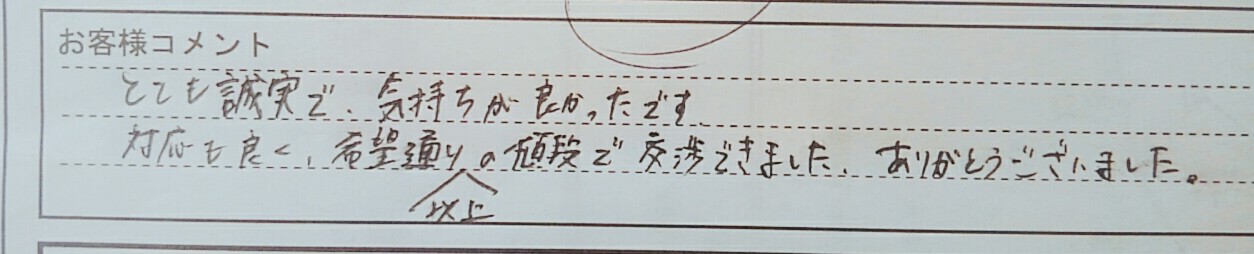 お客様コメント
とても誠実で、気持ちが良かったです。
対応も良く、希望通りの値段で交渉できました。ありがとうございました。
以上